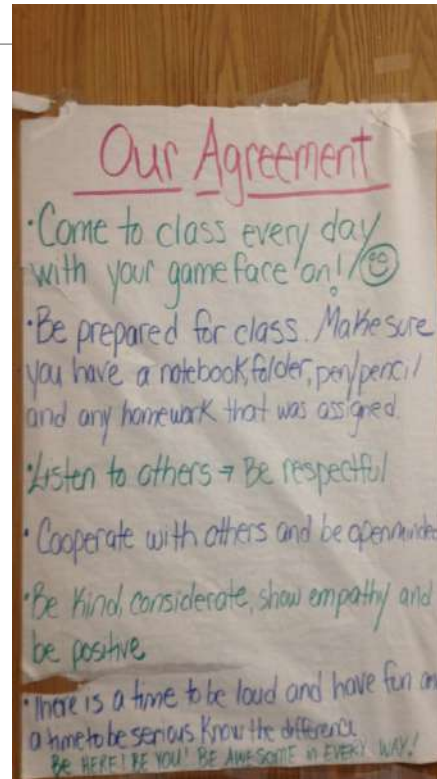 Our Agreement
•Come to class every day
with your game face on! ☺
•Be prepared for class. Make sure
you have a notebook, folder, pen/pencil
and any homework that was assigned.
•Listen to others → Be respectful
•Cooperate with others and be openminded
•Be Kind, considerate, show empathy and
be positive
•There is a time to be loud and have fun an
a time to be serious. Know the difference
BE HERE! BE YOU! BE AWESOME in EVERY WAY!